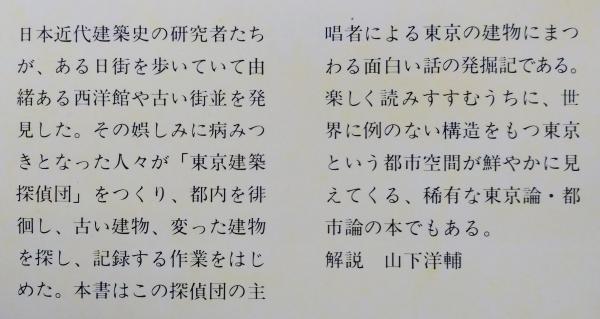 日本近代建築史の研究者たち
が、ある日街を歩いていて由
緒ある西洋館や古い街並を発
見した。その娯しみに病みつ
きとなった人々が「東京建築
探偵団」をつくり、都内を徘
徊し、古い建物、変った建物
を探し、記録する作業をはじ
めた。本書はこの探偵団の主
唱者による東京の建物にまつ
わる面白い話の発掘記である。
楽しく読みすすむうちに、世
界に例のない構造をもつ東京
という都市空間が鮮やかに見
えてくる、稀有な東京論・都
市論の本でもある。
解説　山下洋輔